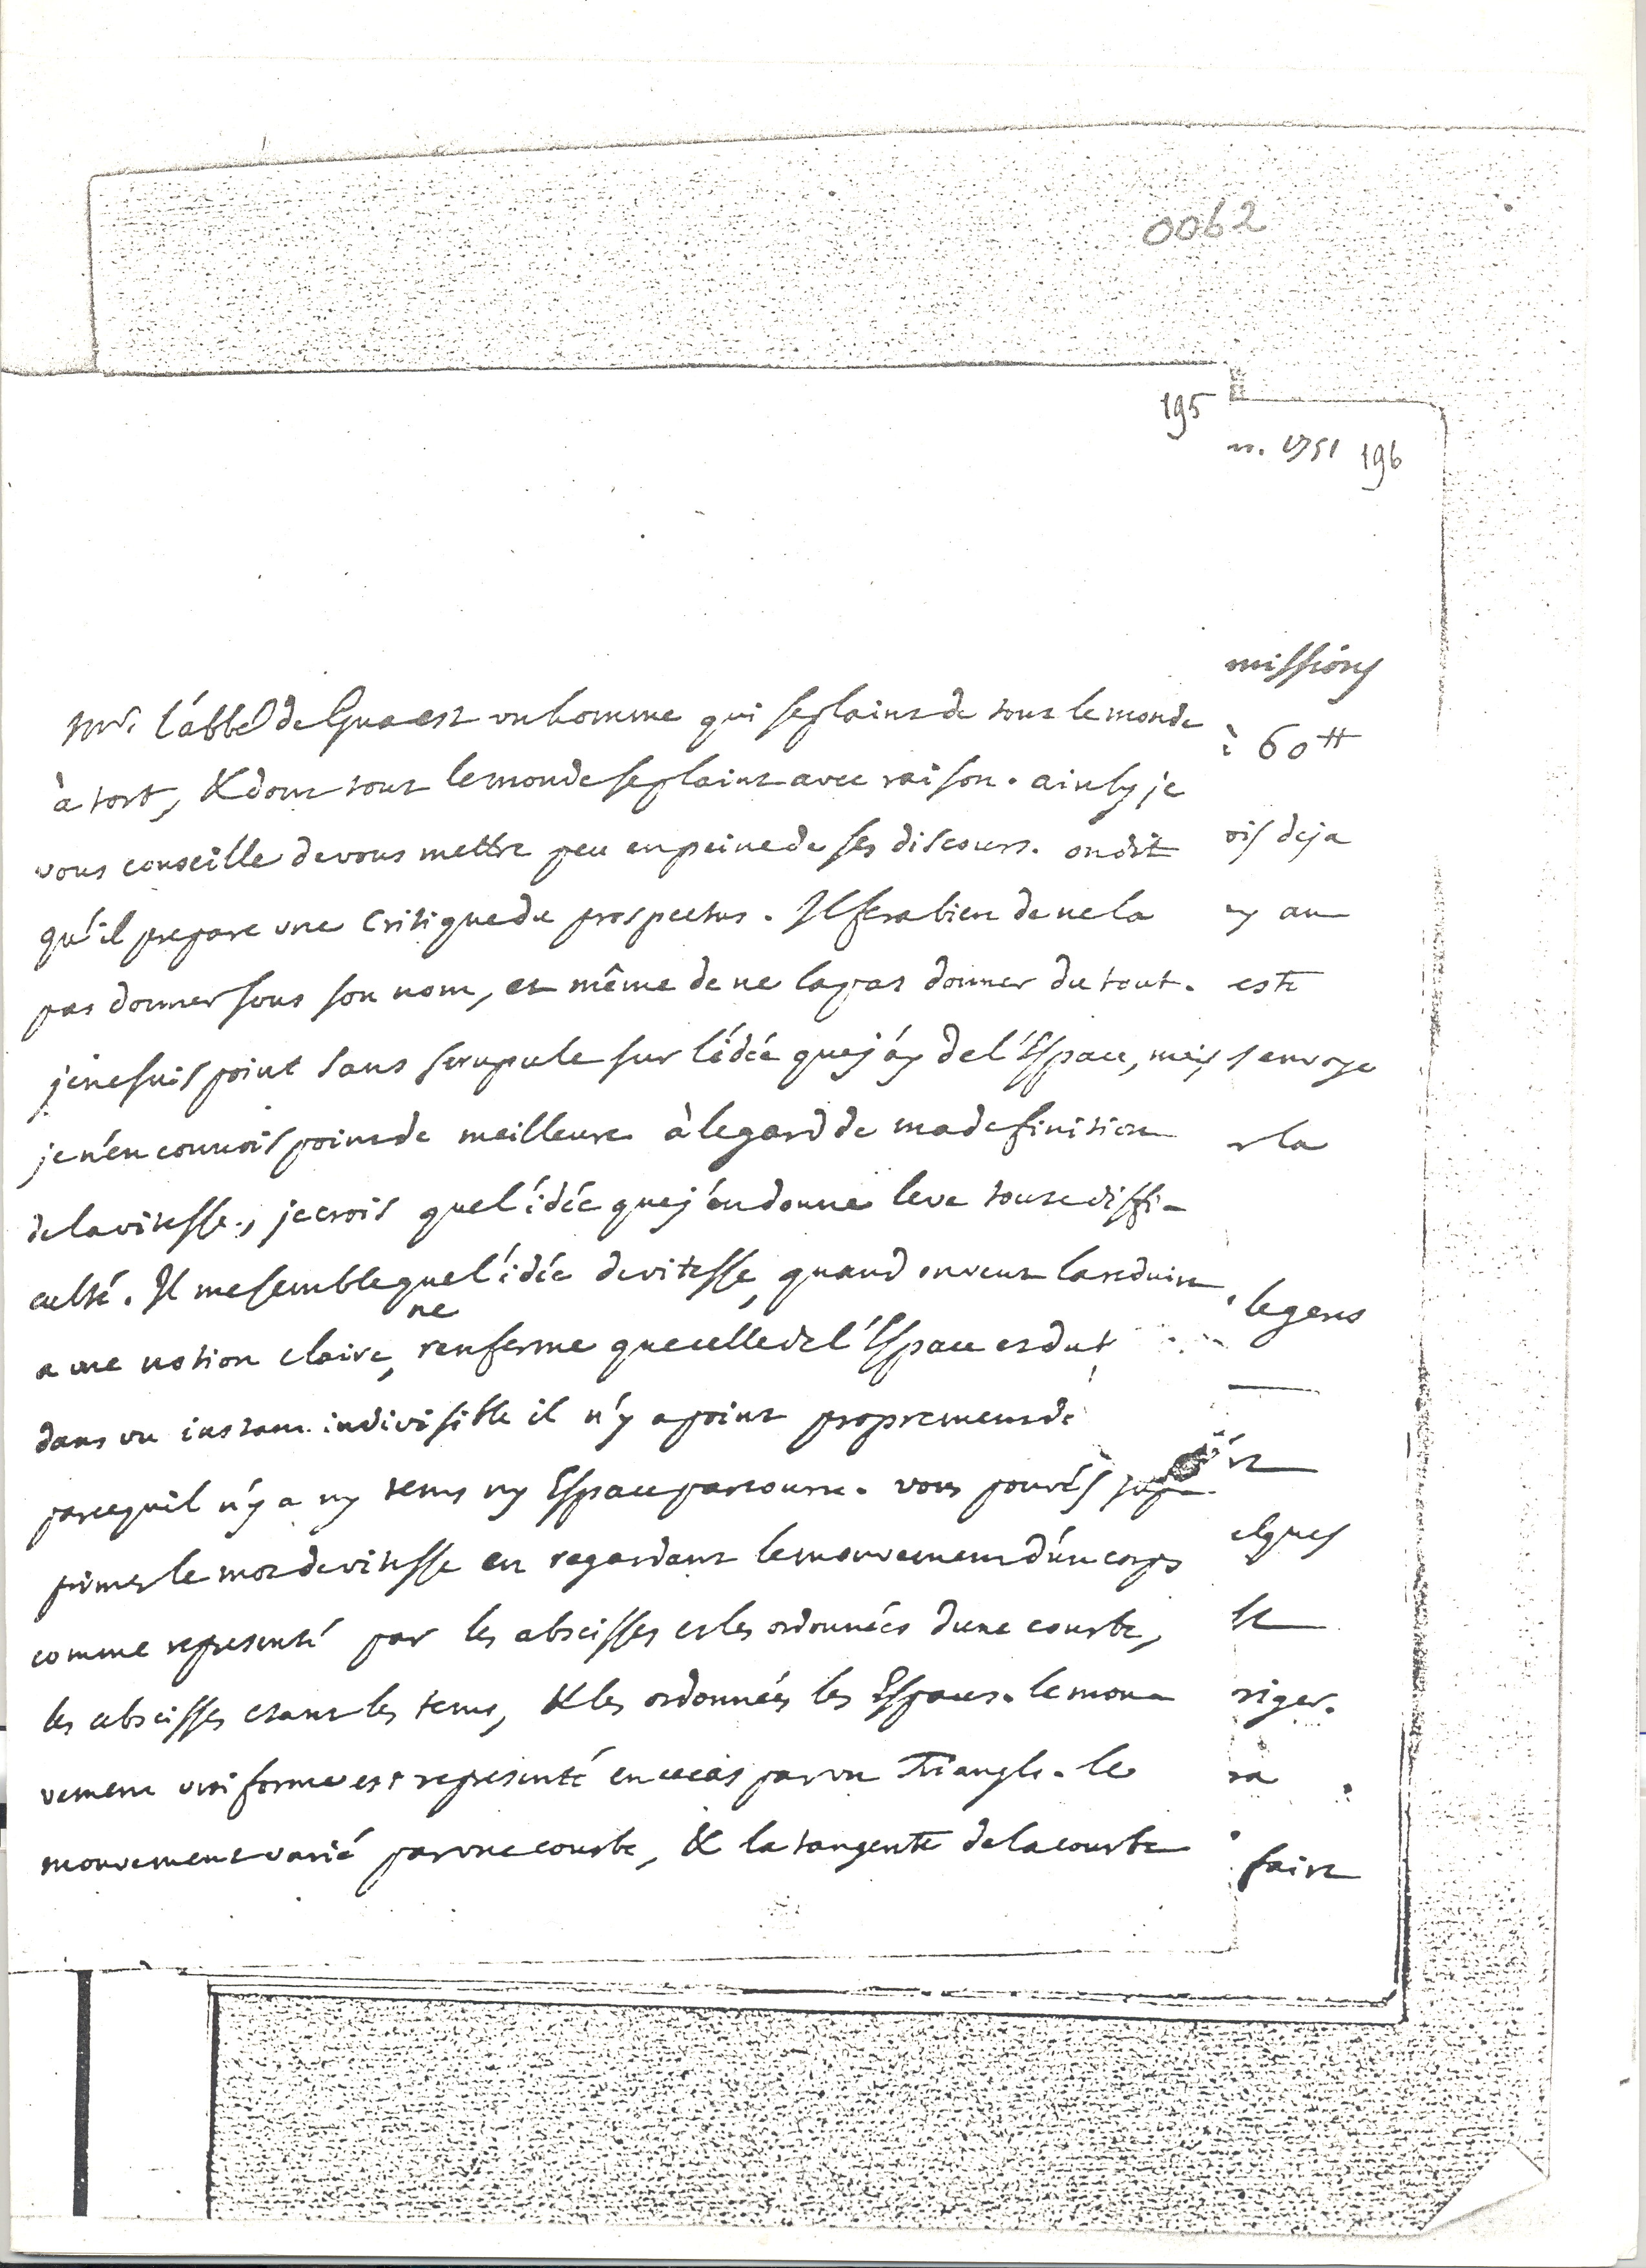 0062
195
n. 1751 196
Mr. l'abbé de Gua est un homme qui se plaint de tout le monde
à tort, & dont tout le monde se plaint avec raison. ainsy je
vous conseille de vous mettre peu en peine de ses discours. on dit
qu'il prepare une Critique du prospectus. Il fera bien de ne la
pas donner sous son nom, et même de ne la pas donner du tout.
je ne suis point sans scrupule sur l'idée que j'ay de l'Espace, mais
je n'en connois point de meilleure à l'egard de ma definition
de la vitesse, je crois que l'idée que j'en donne leve toute diffi-
culté. Il me semble que l'idée de vitesse, quand on veut la reduire
a une notion claire, ne renferme que celle de l'Espace et du t
dans un instant indivisible il n'y a point proprement de
parcequ'il n'y a ny tems ny Espace parcouru. vous pouvés sup
primer le mot de vitesse en regardant le mouvement d'un corps
comme representé par les abscisses et les ordonnées d'une courbe,
les abscisses etant les tems, & les ordonnées les Espaces. le mou-
vement uniforme est representé en ce cas par un Triangle. le
mouvement varié par une courbe, & la tangente de la courbe
missions
à 60 tt
ois deja
ny au
este
s envoye
r la
legens
elques
te
riger.
ra
faire